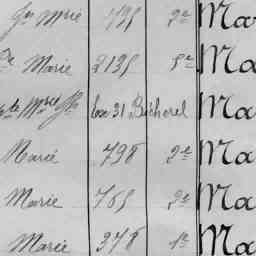 Marie 735 2e Ma
Marie 2135 5e Ma
Ex 31 Bécherel Ma
Marie 798 2e Ma
Marie 765 2e Ma
Marie 378 1e Ma